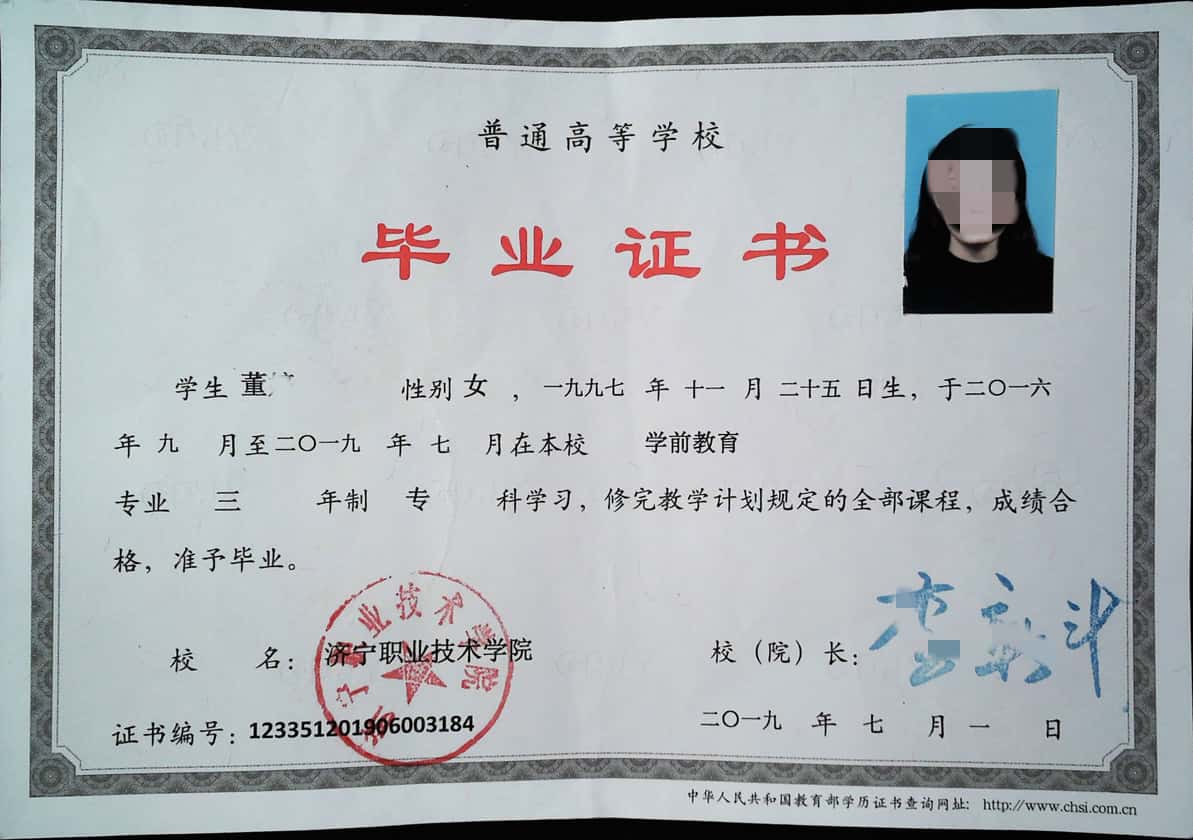 普通高等学校
毕业证书
学生 董 性别 女 ，一九九七 年 十一 月 二十五 日生，于二〇一六
年 九 月至二〇一九 年 七 月在本校 学前教育
专业 三 年制 专 科学习，修完教学计划规定的全部课程，成绩合
格，准予毕业。
校 名： 济宁职业技术学院
校（院）长：
济宁职业技术学院
证书编号：123351201906003184
二〇一九 年 七 月 一 日
中华人民共和国教育部学历证书查询网址： http://www.chsi.com.cn